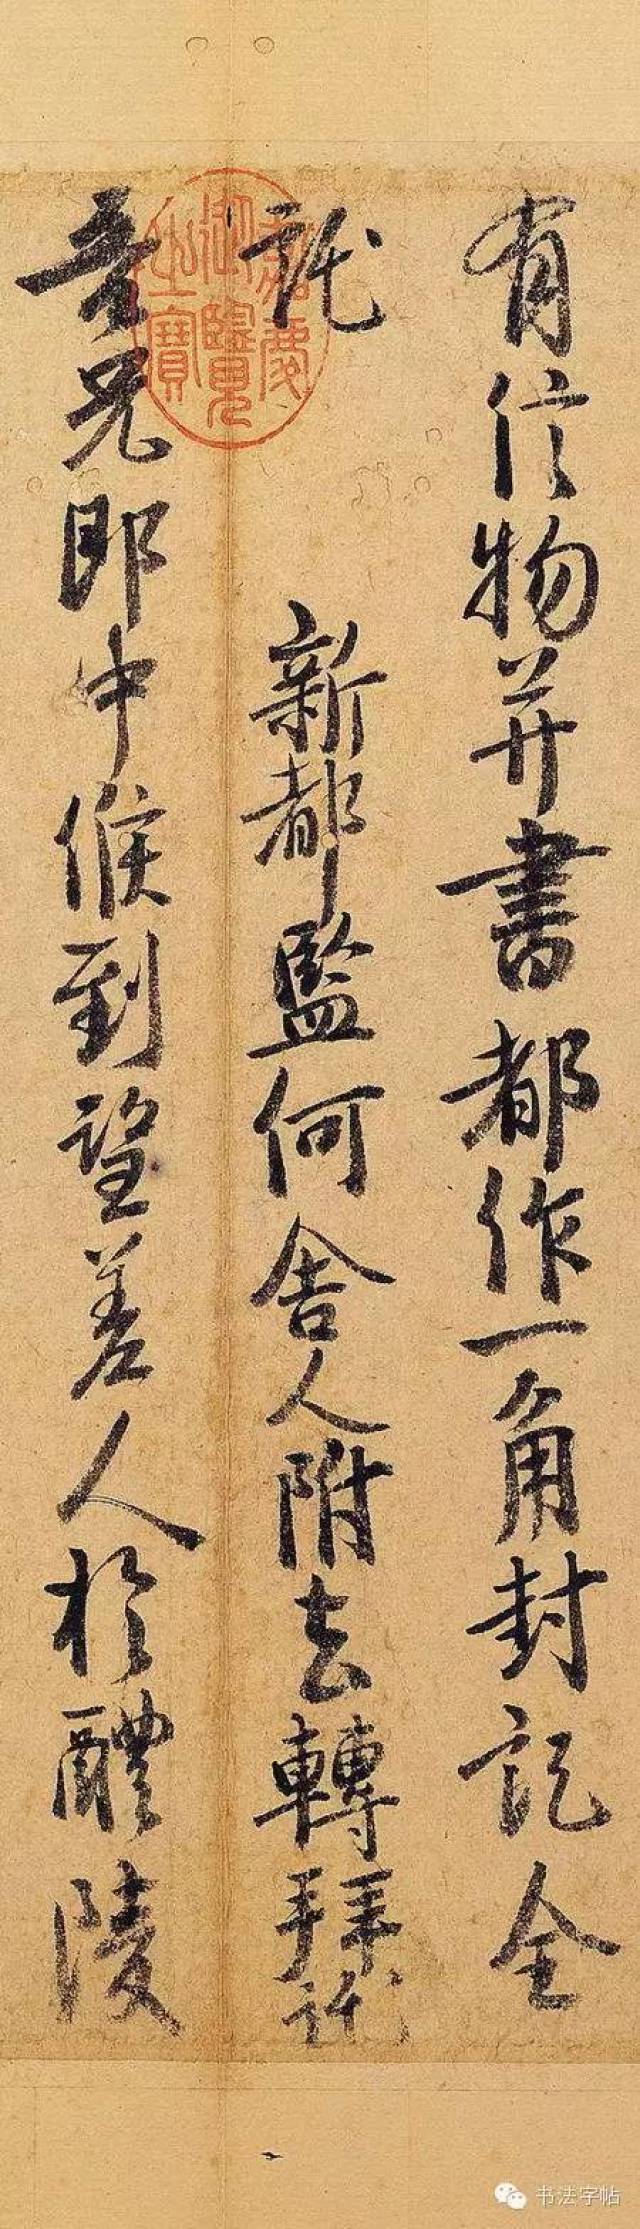 有信物并書都作一角封訖全
託
新都監何舍人附去轉拜託
吾兄郎中候到望差人於醴陵
嘉慶御覽之寶
书法字帖